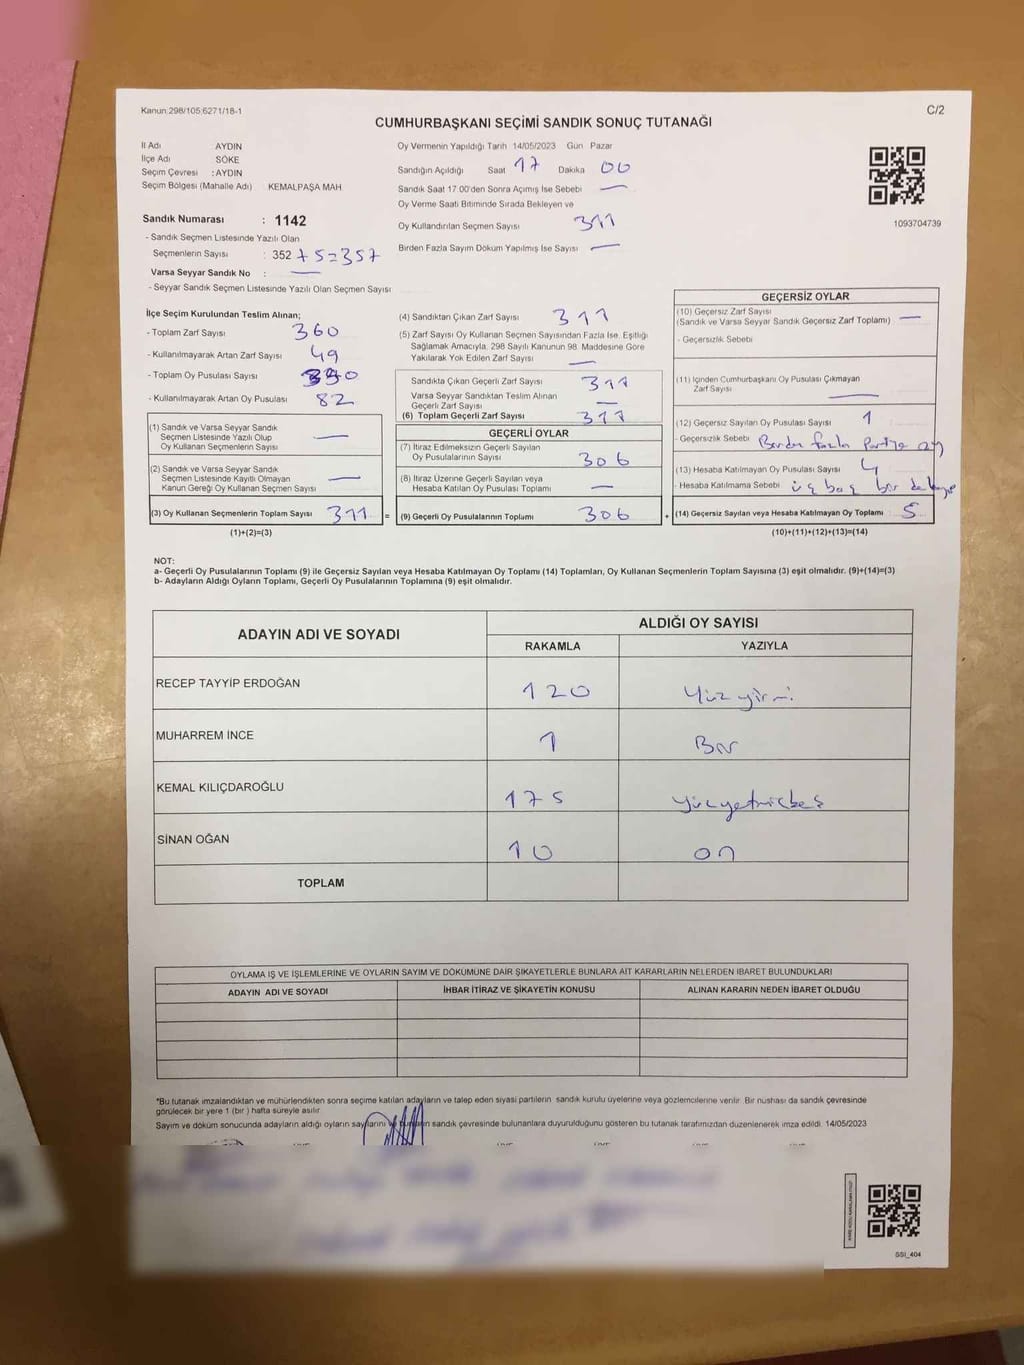 Kanun:298/105;6271/18-1
C/2
CUMHURBAŞKANI SEÇİMİ SANDIK SONUÇ TUTANAĞI
İl Adı AYDIN
İlçe Adı SÖKE
Seçim Çevresi : AYDIN
Seçim Bölgesi (Mahalle Adı) KEMALPAŞA MAH
Sandık Numarası : 1142
- Sandık Seçmen Listesinde Yazılı Olan
Seçmenlerin Sayısı : 352 + 5 = 357
Varsa Seyyar Sandık No : —
- Seyyar Sandık Seçmen Listesinde Yazılı Olan Seçmen Sayısı
Oy Vermenin Yapıldığı Tarih 14/05/2023 Gün Pazar
Sandığın Açıldığı Saat 17 Dakika 00
Sandık Saat 17.00'den Sonra Açılmış İse Sebebi —
Oy Verme Saati Bitiminde Sırada Bekleyen ve
Oy Kullandırılan Seçmen Sayısı 311
Birden Fazla Sayım Döküm Yapılmış İse Sayısı —
1093704739
İlçe Seçim Kurulundan Teslim Alınan;
- Toplam Zarf Sayısı 360
- Kullanılmayarak Artan Zarf Sayısı 49
- Toplam Oy Pusulası Sayısı
- Kullanılmayarak Artan Oy Pusulası 82
(1) Sandık ve Varsa Seyyar Sandık
Seçmen Listesinde Yazılı Olup
Oy Kullanan Seçmenlerin Sayısı —
(2) Sandık ve Varsa Seyyar Sandık
Seçmen Listesinde Kayıtlı Olmayan
Kanun Gereği Oy Kullanan Seçmen Sayısı —
(3) Oy Kullanan Seçmenlerin Toplam Sayısı 311 =
(1)+(2)=(3)
(4) Sandıktan Çıkan Zarf Sayısı 311
(5) Zarf Sayısı Oy Kullanan Seçmen Sayısından Fazla İse, Eşitliği
Sağlamak Amacıyla, 298 Sayılı Kanunun 98. Maddesine Göre
Yakılarak Yok Edilen Zarf Sayısı —
Sandıkta Çıkan Geçerli Zarf Sayısı 311
Varsa Seyyar Sandıktan Teslim Alınan
Geçerli Zarf Sayısı —
(6) Toplam Geçerli Zarf Sayısı 311
GEÇERLİ OYLAR
(7) İtiraz Edilmeksizin Geçerli Sayılan
Oy Pusulalarının Sayısı 306
(8) İtiraz Üzerine Geçerli Sayılan veya
Hesaba Katılan Oy Pusulası Toplamı —
(9) Geçerli Oy Pusulalarının Toplamı 306 +
GEÇERSİZ OYLAR
(10) Geçersiz Zarf Sayısı
(Sandık ve Varsa Seyyar Sandık Geçersiz Zarf Toplamı) —
- Geçersizlik Sebebi
(11) İçinden Cumhurbaşkanı Oy Pusulası Çıkmayan
Zarf Sayısı —
(12) Geçersiz Sayılan Oy Pusulası Sayısı 1
- Geçersizlik Sebebi Birden fazla Partiye oy
(13) Hesaba Katılmayan Oy Pusulası Sayısı 4
- Hesaba Katılmama Sebebi üç boş bir
(14) Geçersiz Sayılan veya Hesaba Katılmayan Oy Toplamı 5
(10)+(11)+(12)+(13)=(14)
NOT:
a- Geçerli Oy Pusulalarının Toplamı (9) ile Geçersiz Sayılan veya Hesaba Katılmayan Oy Toplamı (14) Toplamları, Oy Kullanan Seçmenlerin Toplam Sayısına (3) eşit olmalıdır. (9)+(14)=(3)
b- Adayların Aldığı Oyların Toplamı, Geçerli Oy Pusulalarının Toplamına (9) eşit olmalıdır.
ADAYIN ADI VE SOYADI
ALDIĞI OY SAYISI
RAKAMLA YAZIYLA
RECEP TAYYİP ERDOĞAN 120 Yüz yirmi
MUHARREM İNCE 1 Bir
KEMAL KILIÇDAROĞLU 175 yüzyetmişbeş
SİNAN OĞAN 10 on
TOPLAM
OYLAMA İŞ VE İŞLEMLERİNE VE OYLARIN SAYIM VE DÖKÜMÜNE DAİR ŞİKAYETLERLE BUNLARA AİT KARARLARIN NELERDEN İBARET BULUNDUKLARI
ADAYIN ADI VE SOYADI İHBAR İTİRAZ VE ŞİKAYETİN KONUSU ALINAN KARARIN NEDEN İBARET OLDUĞU
*Bu tutanak imzalandıktan ve mühürlendikten sonra seçime katılan adayların ve talep eden siyasi partilerin sandık kurulu üyelerine veya gözlemcilerine verilir. Bir nüshası da sandık çevresinde
görülecek bir yere 1 (bir ) hafta süreyle asılır.
Sayım ve döküm sonucunda adayların aldığı oyların sayılarını ve bunların sandık çevresinde bulunanlara duyurulduğunu gösteren bu tutanak tarafımızdan düzenlenerek imza edildi. 14/05/2023
SSI_404